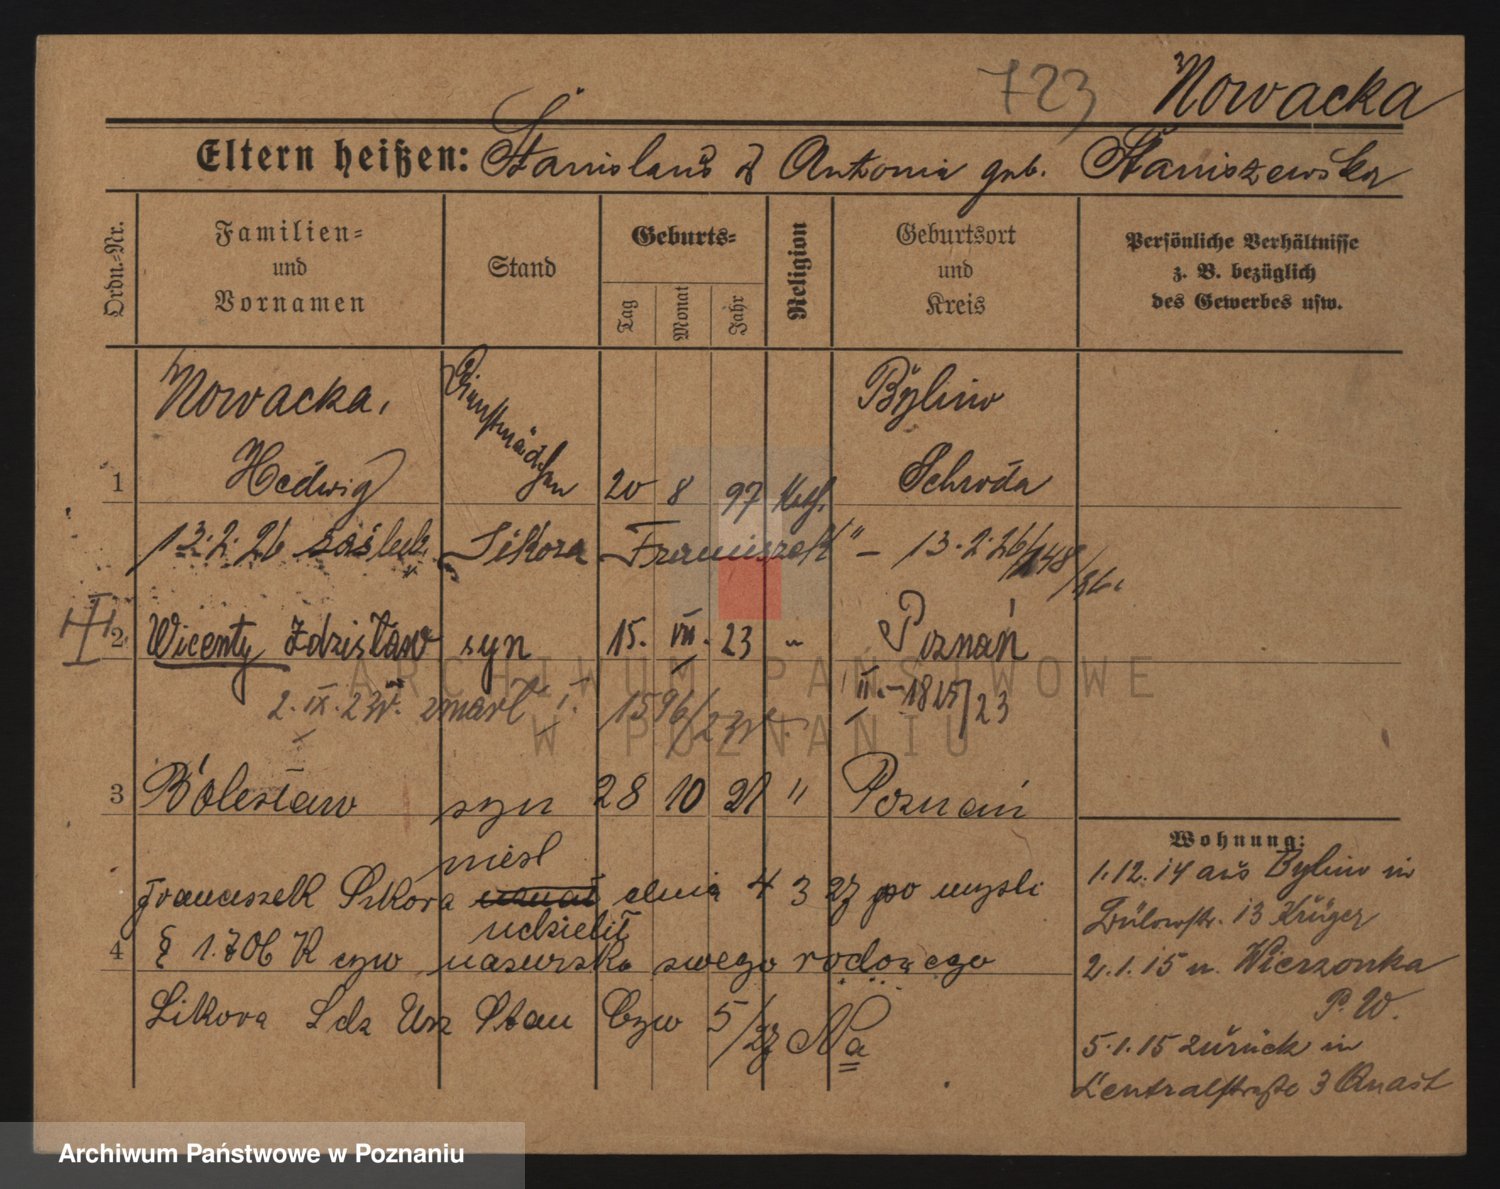 723 Nowacka
Eltern heißen: Stanislaus & Antonia geb. Staniszewska
Ordn.-Nr.
Familien-
und
Vornamen
Stand
Geburts-
Tag
Monat
Jahr
Religion
Geburtsort
und
Kreis
Persönliche Verhältnisse
z. B. bezüglich
des Gewerbes usw.
Nowacka, Dienstmädchen Bylin
1 Hedwig 20 8 97 Kath. Schroda
13.2.26 Sikora Franciszek" – 13.2.26/148/26.
2 Wicenty Zdzisław syn 15. VII. 23 " Poznań
2. IX. 23r. zmarł I. 1596/23r. II. – 1815/23
3 Bolesław syn 28 10 21 " Poznań
niesl
Franciszek Sikora dnia 4 3 27 po mysli
udzielił
4 § 1706 K czw nazwiska swego rodowego
Sikora Sda Urz Stan Czw 5/27 Na
Wohnung:
1.12.14 aus Bylin in
Bülowstr. 13 Krüger
2.1.15 n. Wierzonka
P. W.
5.1.15 zurück in
Centralstraße 3
ARCHIWUM PAŃSTWOWE
W POZNANIU
Archiwum Państwowe w Poznaniu